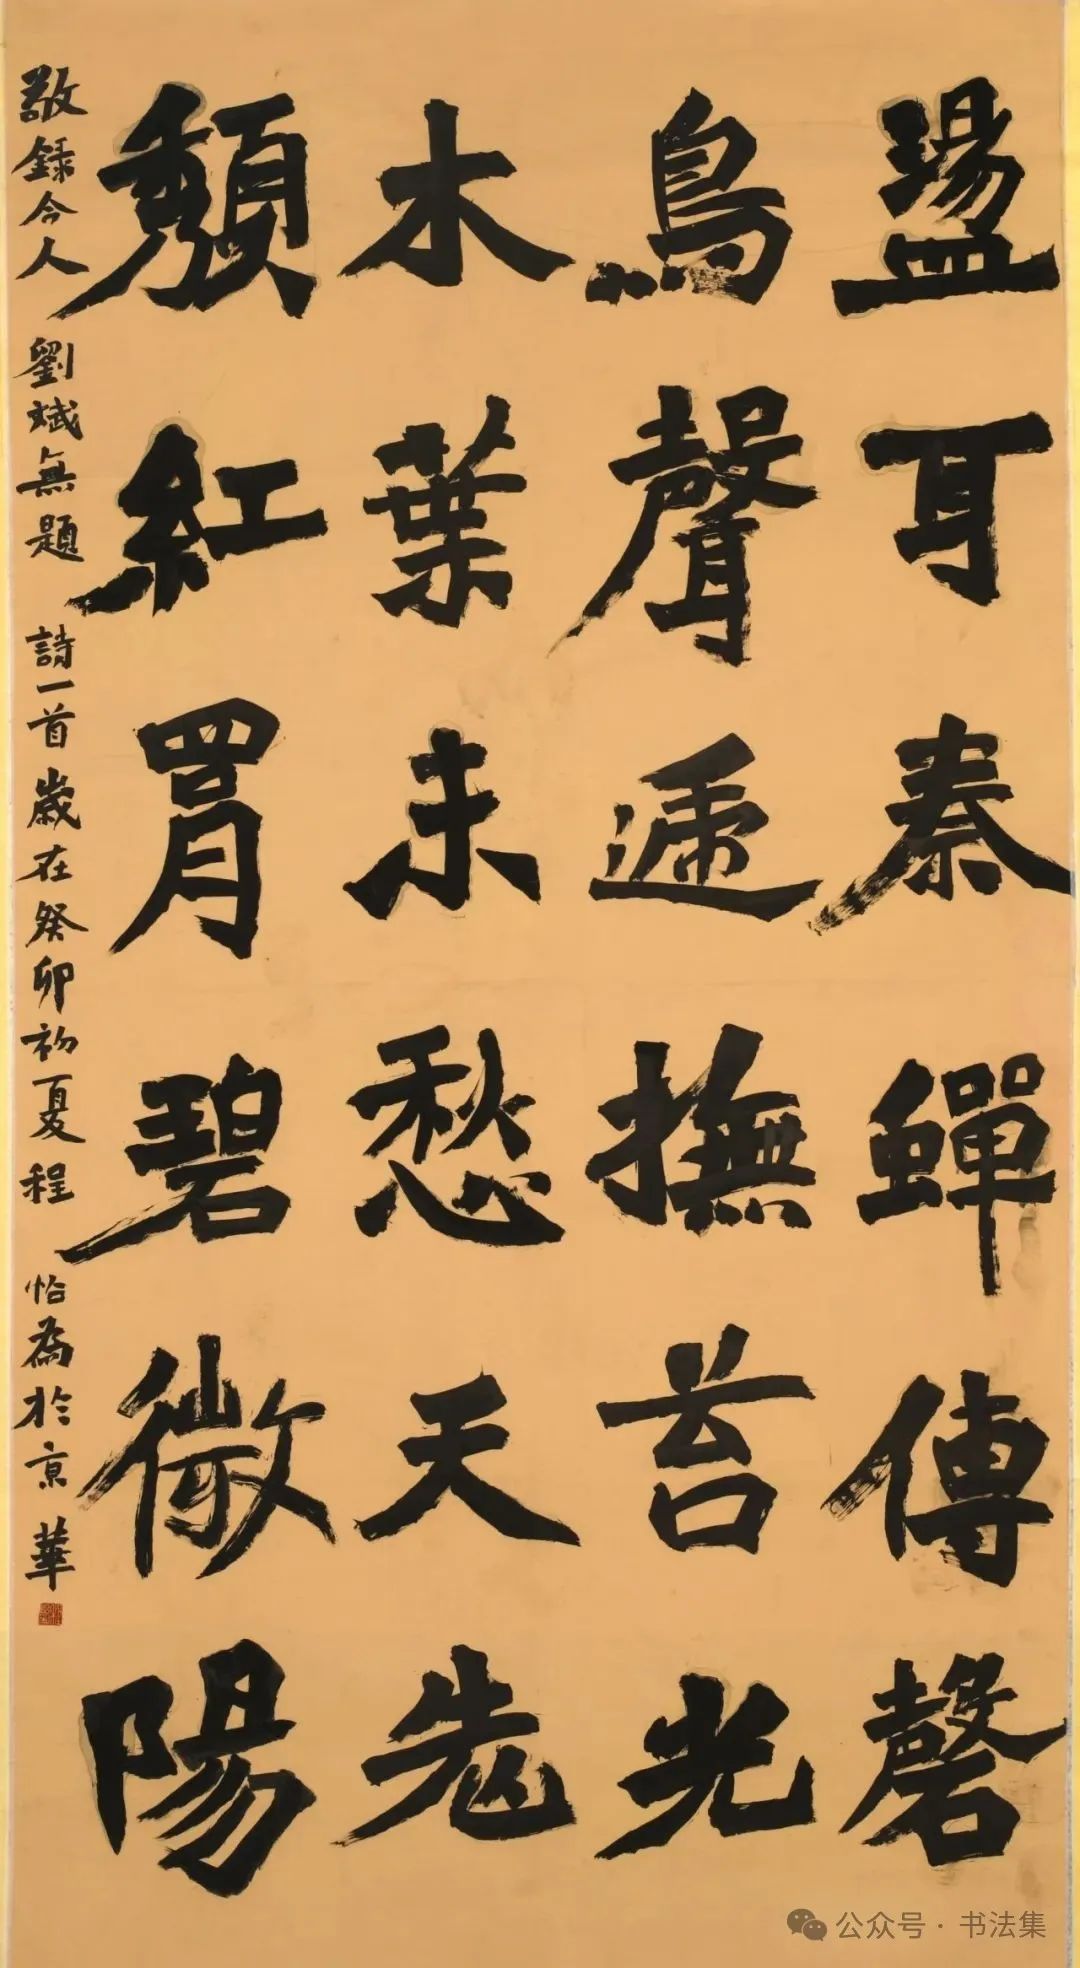 盪耳秦蟬傳磬
鳥聲遞撫苔光
木葉未愁天先
頽紅罥碧微陽
敬録今人劉斌無題詩一首歲在癸卯初夏程怡為於京華
公众号·书法集